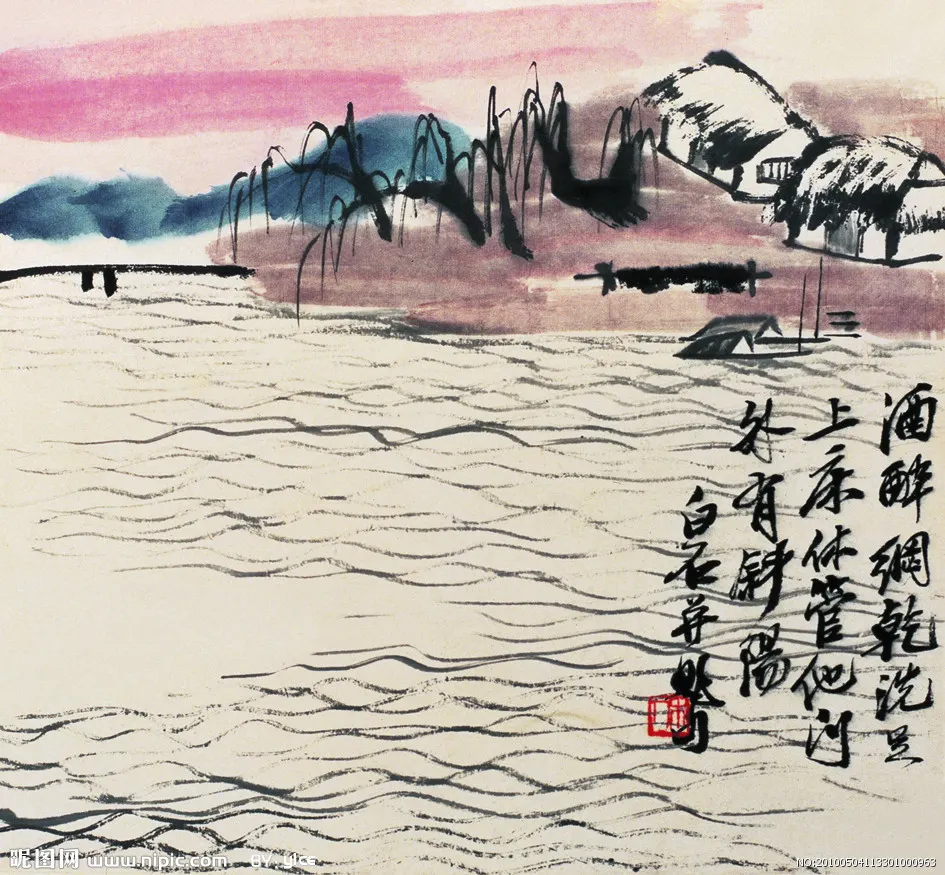 酒醉網乾洗足
上床休管他門
外有斜陽
白石并題句
昵图网 www.nipic.com BY:yice
NO:20100504113301000953